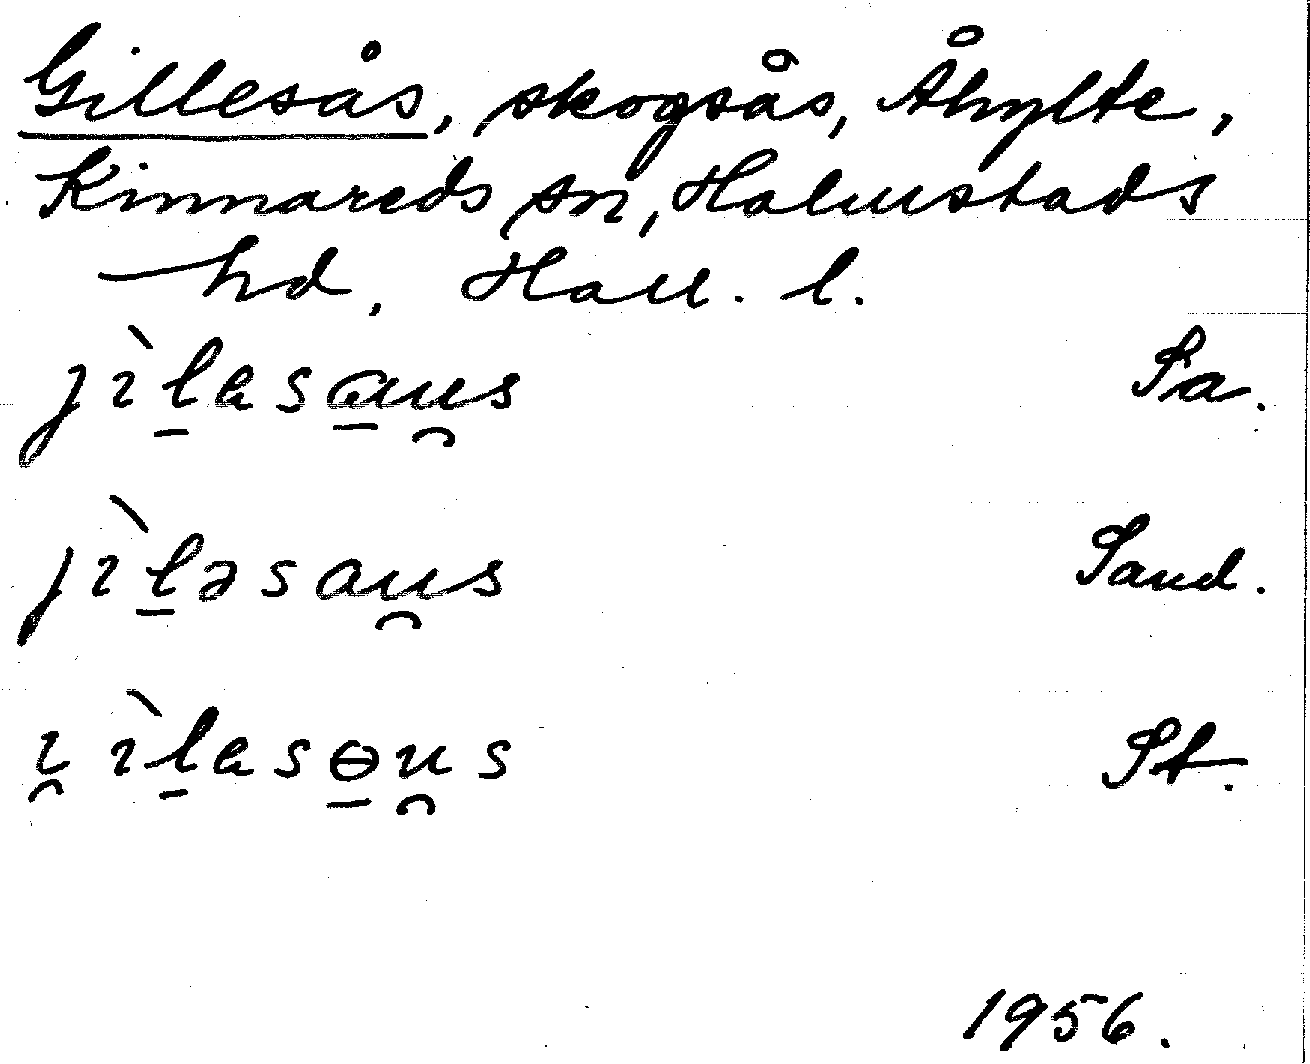 Gillesås, skogsås, Åhylte,
Kinnareds sn, Halmstads
hd, Hall. l.
jìl̠esa̠u̯s Sa.
jìl̠əsau̯s Sand.
ı̯ìl̠esɵ̠u̯s St.
1956.